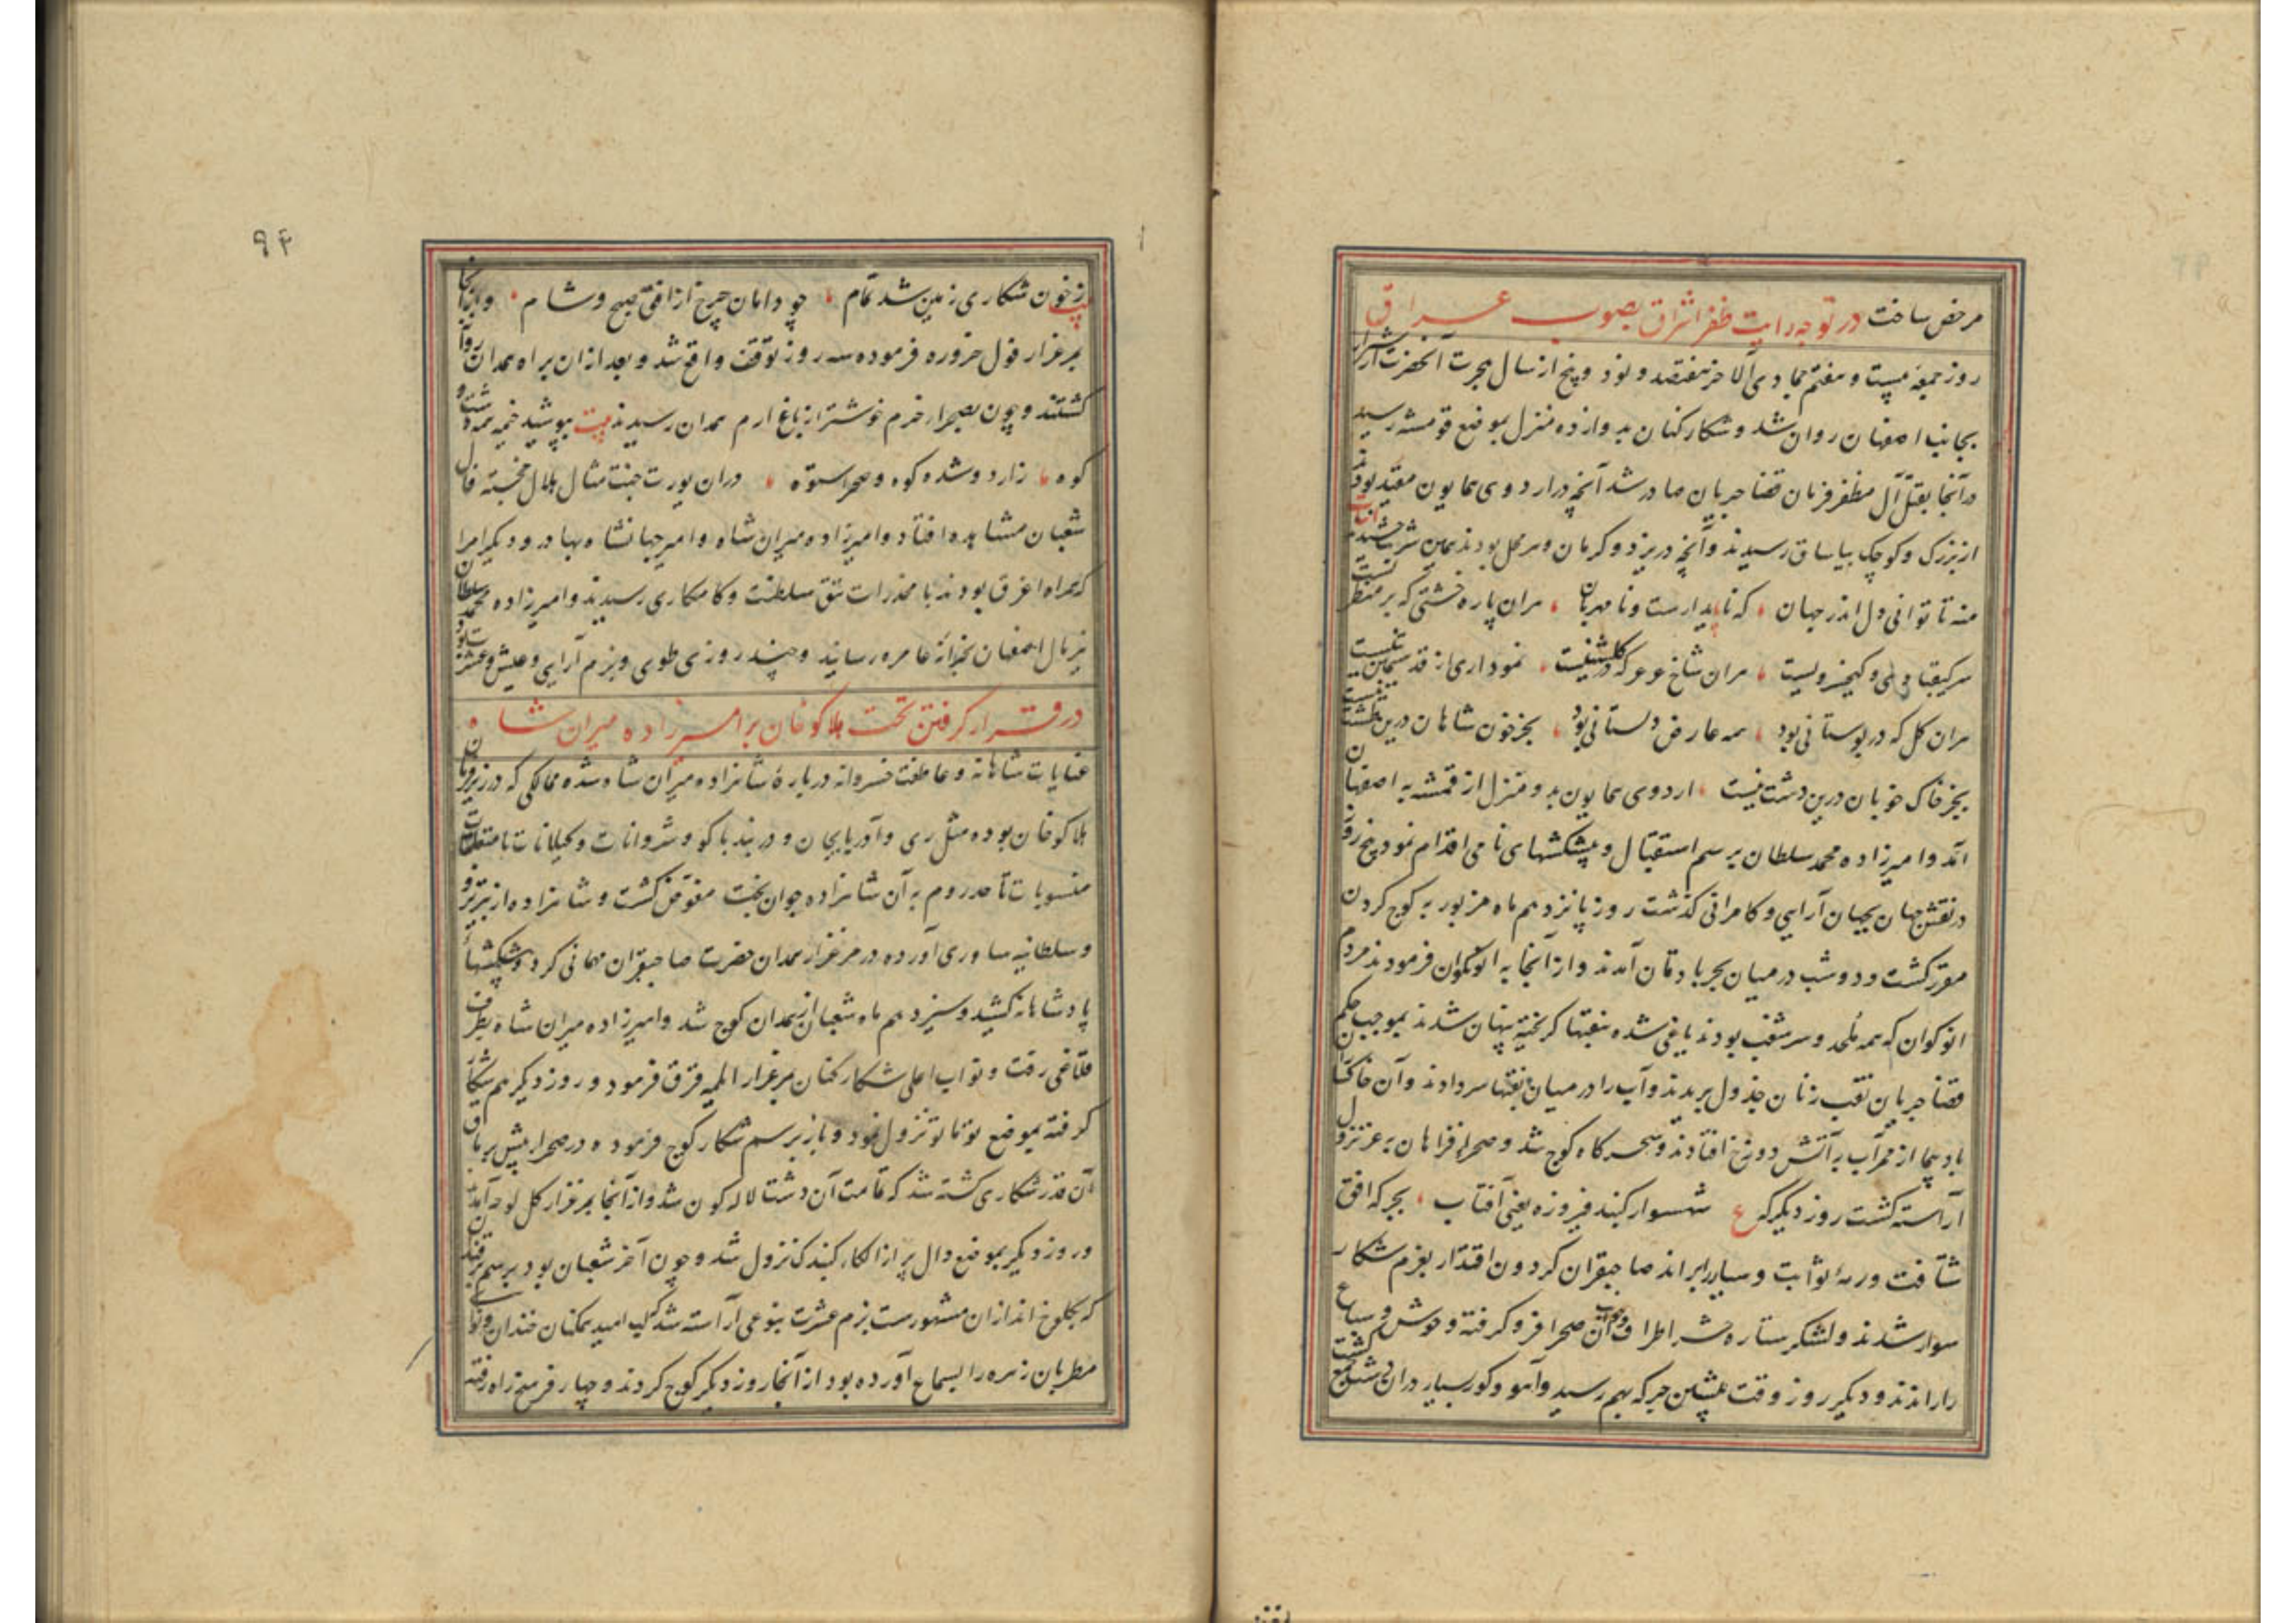 مرخص ساخت در توجه رایت ظفر اشراق بصوب عراق
روز جمعه بیست و هفتم جمادی الاخر هفتصد و نود و پنج از سال هجرت آنحضرت
بجانب اصفهان روان شد و شکارکنان بدوازده منزل بموضع قومشه رسید
در آنجا بقتل آل مظفر فرمان قضا جریان صادر شد آنچه در اردوی همایون مقید بودند
از بزرگ و کوچک بیاساق رسیدند و آنچه در یزد و کرمان و سر محل بودند همین شربت چشیدند ابیات
منه تا توانی دل اندر جهان که ناپایدارست و نامهربان هران پاره خشتی که بر منظریست
سر کیقبادی و کیخسرویست هران شاخ عرعر که در گلشنیست نموداری از قد سیمین تنیست
هران گل که در بوستانی بود همه عارض دلستانی بود بجز خون شاهان درین طشت نیست
بجز خاک خوبان درین دشت نیست اردوی همایون بدو منزل از قمشه به اصفهان
آمد و امیرزاده محمد سلطان برسم استقبال و پیشکشهای نامی اقدام نمود پنج روز
در نقش جهان بجهان آرایی و کامرانی گذشت روز پانزدهم ماه مزبور به کوچ کردن
مقرر گشت و دو شب در میان بجربادقان آمدند و از آنجا به انوکوان فرمودند مردم
انوکوان که همه ملحد و سر مشغب بودند یاغی شده بنقبها گریخته پنهان شدند بموجب حکم
قضا جریان نقب زنان جدول بریدند و آب را در میان نقبها سر دادند و آن خاکساران
باد پیما از ممر آب به آتش دوزخ افتادند و سحرگاه کوچ شد و صحراء فراهان بعز نزول
آراسته گشت روز دیگر که ع شهسوار گنبد فیروزه یعنی آفتاب بجرکه افق
شتافت و رمه ثوابت و سیار را براند صاحبقران گردون اقتدار بعزم شکار
سوار شدند و لشکر ستاره حشر اطراف و جوانب آن صحرا فرو گرفته و وحوش و سباع
را راندند و دیگر روز وقت پیشین جرکه بهم رسید و آهو و گور بسیار در ان دشت جمع گشت
۹۴
بیت ز خون شکاری زمین شد تمام چو دامان چرخ از افق صبح و شام و از آنجا
بمرغزار قول خروره فرموده سه روز توقف واقع شد و بعد از ان براه همدان روان
گشتند و چون بصحراء خرم خوشتر از باغ ارم همدان رسیدند بیت بپوشید خیمه همه دشت و
کوه ز اردو شده کوه و صحرا ستوه در ان یورت جنت مثال هلال خجسته فال
شعبان مشاهده افتاد و امیرزاده میران شاه و امیر جهانشاه بهادر و دیگر امرا
که همراه اغرق بودند با مخدرات تتق سلطنت و کامکاری رسیدند و امیرزاده محمد سلطان
نیز مال اصفهان بخزانه عامره رسانید و چند روزی طوی و بزم آرایی و عیش و عشرت بود
در قرار گرفتن تخت هلاکو خان بر امیرزاده میران شاه
عنایات شاهانه و عاطفت خسروانه در باره شاهزاده میران شاه شده ممالکی که در زیر فرمان
هلاکو خان بوده مثل ری و آذربایجان و دربند باکو و شروانات و گیلانات با متعلقات
منسوبات تا حد روم به آن شاهزاده جوان بخت مفوض گشت و شاهزاده از تبریز و
و سلطانیه ساوری آورده در مرغزار همدان حضرت صاحبقران مهمانی کرد و پیشکشهای
پادشاهانه کشید و سیزدهم ماه شعبان از همدان کوچ شد و امیرزاده میران شاه بطرف
قلاغی رفت و نواب اعلی شکارکنان بمرغزار ایلمه قرق فرمود و روز دیگر هم شکار
گرفته بموضع توتاتو نزول نمود و باز برسم شکار کوچ فرموده در صحراء پیش برماق
آن قدر شکاری کشته شد که تمامت آن دشت لاله گون شد و از آنجا بمرغزار گل لوحه آمدند
و روز دیگر بموضع دال پر از الکاء گنبدک نزول شد و چون آخر شعبان بود برسم سمرقند
که بکلوخ اندازان مشهورست بزم عشرت بنوعی آراسته شد که لب امید همکنان خندان و نوای
مطربان زهره را بسماع آورده بود از آنجا روز دیگر کوچ کردند و چهار فرسخ راه رفته